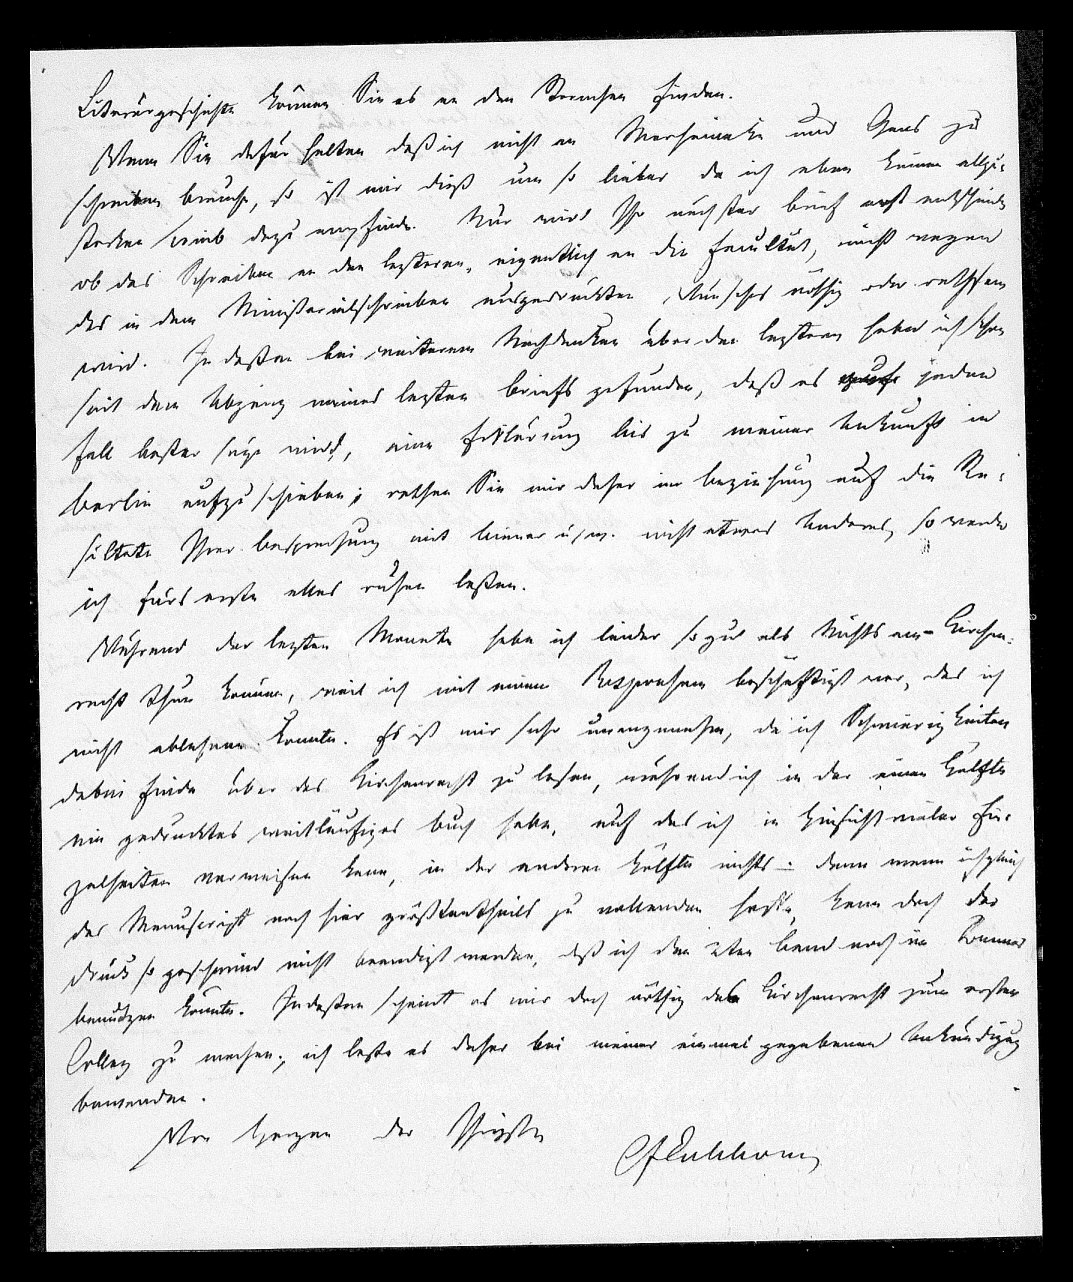 Literärgeschichte können Sie es an den Bremsen finden.
Wenn Sie dafür halten daß ich nicht an Marheineke und Gans zu
schreiben brauche, so ist mir dieß um so lieber da ich eben keinen allzu-
starken Trieb dazu empfinde. Nur wird Ihr nächster Brief erst entscheiden
ob das Schreiben an den lezteren, eigentlich an die Facultät, nicht wegen
des in dem Ministerialschreiben ausgedrückten Wunsches nöthig oder rathsam
wird. Indeßen bei weiterem Nachdenken über den lezteren habe ich schon
seit dem Abgang meines lezten Briefs gefunden, daß es jeden
Fall beßer seyn wird, eine Erklärung bis zu meiner Ankunft in
Berlin aufzuschieben; rathen Sie mir daher in Beziehung auf die Re-
sultate Ihrer Besprechung mit u.s.w. nicht etwas Anderes, so werde
ich fürs erste alles ruhen laßen.
Während der lezten Monate habe ich leider so gut als Nichts am Kirchen-
recht thun können, weil ich mit einem Responsum beschäftigt war, das ich
nicht ablehnen konnte. Es ist mir sehr unangenehm, da ich Schwierigkeiten
dabei finde über das Kirchenrecht zu lesen, während ich in der einen Hälfte
ein gedrucktes weitläufiges Buch habe, auf das ich in Hinsicht vieler Ein-
zelheiten verweisen kann, in der anderen Hälfte nichts – denn wenn ich gleich
das Manuscript noch hier größtentheils zu vollenden hoffe, kann doch der
Druck so geschwind nicht beendigt werden, daß ich den 2ten Band noch im Sommer
benutzen könnte. Indeßen scheint es mir doch nöthig das Kirchenrecht zum ersten
Colleg zu machen; ich laße es daher bei meiner einmal gegebenen Ankündigung
bewenden.
Von Herzen der Ihrigste
CFEichhorn